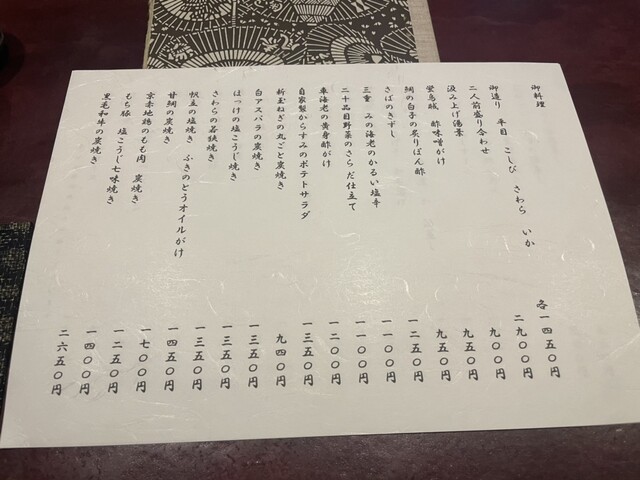 御料理
御造り 平目 こしび さわら いか 各一四五〇円
二人前盛り合わせ 二九〇〇円
汲み上げ湯葉 九〇〇円
蛍烏賊 酢味噌がけ 九五〇円
鯛の白子の炙りぽん酢 九五〇円
さばのきずし 一二五〇円
三重 みの海老のかるい塩辛 一一〇〇円
二十品目野菜のさらだ仕立て 一一〇〇円
車海老の黄身酢がけ 一二〇〇円
自家製からすみのポテトサラダ 一三五〇円
新玉ねぎの丸ごと炭焼き 九四〇円
白アスパラの炭焼き 一三五〇円
ほっけの塩こうじ焼き 一三五〇円
さわらの若狭焼き 一三五〇円
帆立の塩焼き ふきのとうオイルがけ 一四五〇円
甘鯛の炭焼き 一七〇〇円
京赤地鶏のもも肉 炭焼き 一二五〇円
もち豚 塩こうじ七味焼き 一四〇〇円
黒毛和牛の炭焼き 二六五〇円